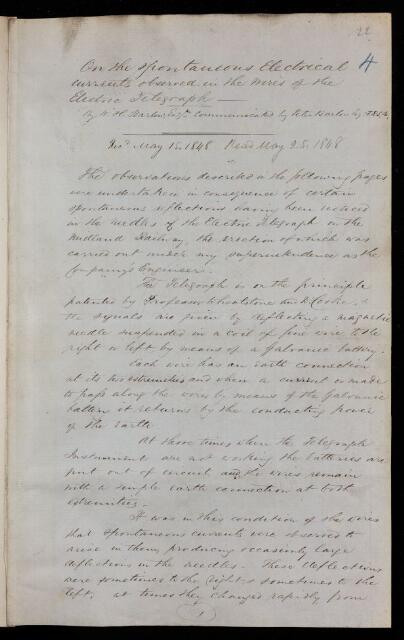 22
4
On the spontaneous Electrical
currents observed in the wires of the
Electric Telegraph —
By W. H. Barlow Esqre communicated by Peter Barlow Esq F.R.S. &c
Recd May 15 1848 Read May 25. 1848
The observations described in the following pages
were undertaken in consequence of certain
spontaneous deflections having been noticed
in the needles of the Electric Telegraph on the
Midland Railway, the erection of which was
carried out under my superintendence as the
Company's Engineer.
The Telegraph is on the principle
patented by Professor Wheatstone and Cooke,
the signals are given by deflecting a magnetic
needle suspended in a coil of fine wire to the
right or left by means of a Galvanic battery.
Each wire has an earth connection
at its two extremities and when a current is made
to pass along the wires by means of the Galvanic
battery it returns by the conducting power
of the Earth
At those times when the Telegraph
Instruments are not working the batteries are
put out of circuit and the wires remain
with a simple earth connection at both
extremities.
It was in this condition of the wires
that spontaneous currents were observed to
arise in them, producing occasionly large
deflections in the needles. These deflections
were sometimes to the right & sometimes to the
left, at times they changed rapidly from
1